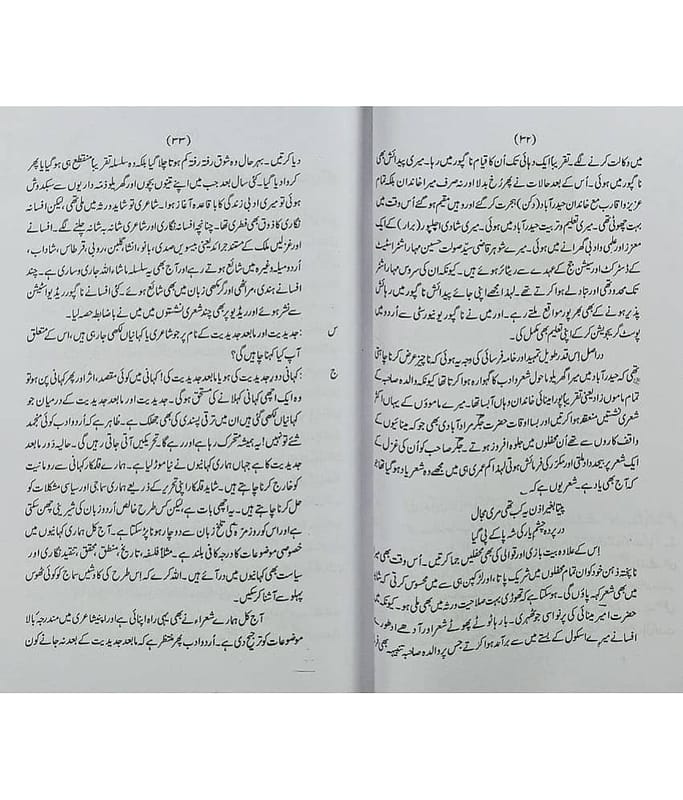 (۳۲)
میں وکالت کرنے لگے۔ تقریباً ایک دہائی تک اُن کا قیام ناگپور میں رہا۔ میری پیدائش بھی
ناگپور میں ہوئی۔ اس کے بعد حالات نے پھر رُخ بدلا اور نہ صرف میرا خاندان بلکہ تمام
عزیز و اقارب مع خاندان حیدرآباد (دکن) ہجرت کر گئے اور وہیں مقیم ہو گئے اُس وقت میں
بہت چھوٹی تھی۔ میری تعلیم و تربیت حیدرآباد میں ہوئی۔ میری شادی اچلپور (برار) کے ایک
معزز اور علمی و ادبی گھرانے میں ہوئی۔ میرے شوہر قاضی سید صولت حسین مہاراشٹر اسٹیٹ
کے ڈسٹرکٹ اور سیشن جج کے عہدے سے ریٹائر ہوئے ہیں۔ کیونکہ ان کی سروس مہاراشٹر
تک محدود تھی اور تبادلے ہوا کرتے تھے۔ لہٰذا مجھے اپنی جائے پیدائش ناگپور میں رہائش
پذیر ہونے کے بھی بھرپور مواقع ملتے رہے۔ اور میں نے ناگپور یونیورسٹی سے اُردو میں
پوسٹ گریجویشن کر کے اپنی تعلیم بھی مکمل کی۔
دراصل اس قدر طویل تمہید اور خامہ فرسائی کی وجہ یہ ہوئی کہ ناچیز عرض کرنا چاہتی
تھی کہ حیدرآباد میں میرا گھریلو ماحول شعر و ادب کا گہوارہ ہوا کرتا تھا کیونکہ والدہ صاحبہ کے
تمام ماموں زاد یعنی تقریباً پورا مینائی خاندان وہاں آبسا تھا۔ میرے ماموؤں کے یہاں اکثر
شعری نشستیں منعقد ہوا کرتیں اور بسا اوقات حضرت جگر مرادآبادی بھی جو کہ مینائیوں کے
واقف کاروں سے تھے اُن محفلوں میں جلوہ افروز ہوتے۔ جگر صاحب کو اُن کی غزل کے
ایک شعر پر بیحد داد ملتی اور مکرّر کی فرمائش ہوتی لہٰذا کم عمری ہی میں مجھے وہ شعر یاد ہو گیا تھا جو
کہ آج بھی یاد ہے۔ شعر یوں ہے کہ
پیتا بغیر اذن یہ کب تھی مری مجال
در پردہ چشمِ یار کی شہ پا کے پی گیا
اِس کے علاوہ بیت بازی اور قوالی کی بھی محفلیں جما کرتیں۔ اُس وقت بھی میر
ناپختہ ذہن خود کو ان تمام محفلوں میں شریک پاتا، اور لڑکپن ہی سے میں محسوس کرتی کہ شاید
میں بھی شعر کہہ پاؤں گی۔ ہو سکتا ہے کہ تھوڑی بہت صلاحیت ورثہ میں بھی ملی ہو۔ کیونکہ میں
حضرت امیر مینائی کی پرنواسی جو ٹھہری۔ بارہا ٹوٹے پھوٹے شعر اور آدھے ادھورے
افسانے میرے اسکول کے بستے میں سے برآمد ہوا کرتے جس پر والدہ صاحبہ تنبیہہ بھی فر
(۳۳)
دیا کرتیں۔ بہرحال وہ شوق رفتہ رفتہ کم ہوتا چلا گیا بلکہ وہ سلسلہ تقریباً منقطع ہی ہو گیا یا پھر
کروا دیا گیا۔ کئی سال بعد جب میں اپنے تینوں بچوں اور گھریلو ذمّہ داریوں سے سبکدوش
ہوئی تو میری ادبی زندگی کا باقاعدہ آغاز ہوا۔ شاعری تو شاید ورثہ میں ملی تھی، لیکن افسانہ
نگاری کا ذوق بھی فطری تھا۔ چنانچہ افسانہ نگاری اور شاعری شانہ بہ شانہ چلنے لگے۔ افسانے
اور غزلیں ملک کے مستند جرائد یعنی بیسویں صدی، بانو، انشا، گلبن، روبی، قرطاس، شاداب،
اُردو میلہ وغیرہ میں شائع ہوتے رہے اور آج بھی یہ سلسلہ ماشاءاللہ جاری و ساری ہے۔ چند
افسانے ہندی، مراٹھی اور گرمکھی زبان میں بھی شائع ہوئے۔ کئی افسانے ناگپور ریڈیو اسٹیشن
سے نشر ہوئے اور ریڈیو پر بھی چند شعری نشستوں میں میں نے باضابطہ حصہ لیا۔
س : جدیدیت اور مابعد جدیدیت کے نام پر جو شاعری یا کہانیاں لکھی جا رہی ہیں، اس کے متعلق
آپ کیا کہنا چاہیں گی؟
ج : کہانی دورِ جدیدیت کی ہو یا مابعد جدیدیت کی! کہانی میں کوئی مقصد، اثر اور پھر کہانی پن ہو تو
وہ ایک اچھی کہانی کہلانے کی مستحق ہو گی۔ جدیدیت اور مابعد جدیدیت کے درمیان جو
کہانیاں لکھی گئی ہیں ان میں ترقی پسندی کی بھی جھلک ہے۔ ظاہر ہے کہ اُردو ادب کوئی منجمد
شئے تو نہیں! یہ ہمیشہ متحرک رہا ہے اور رہے گا۔ تحریکیں آتی جاتی رہیں گی۔ حالیہ دور مابعد
جدیدیت کا ہے جہاں ہماری کہانیوں نے نیا موڑ لیا ہے۔ ہمارے قلمکار کہانی سے رومانیت
کو خارج کرنا چاہتے ہیں۔ شاید قلمکار اپنی تحریر کے ذریعے ہماری سماجی اور سیاسی مشکلات کو
حل کرنا چاہتے ہیں۔ یہ اچھی بات ہے، لیکن کس طرح خالص اُردو زبان کی شیرینی چھن سکتی
ہے اور اس کو روزمرہ کی تلخ زبان سے دوچار ہونا پڑ سکتا ہے۔ آج کل ہماری کہانیوں میں
خصوصی موضوعات کا درجہ کافی بلند ہے۔ مثلاً فلسفہ، تاریخ، منطق، محقق، تنقید نگاری اور
سیاست بھی کہانیوں میں در آئے ہیں۔ اللہ کرے کہ اس طرح کی کاوشیں سماج کو کوئی ٹھوس
پہلو سے آشنا کر سکیں۔
آج کل ہمارے شعراء نے بھی یہی راہ اپنائی ہے اور اپنی شاعری میں مندرجہ بالا
موضوعات کو ترجیح دی ہے۔ اُردو ادب پھر منتظر ہے کہ مابعد جدیدیت کے بعد نہ جانے کون